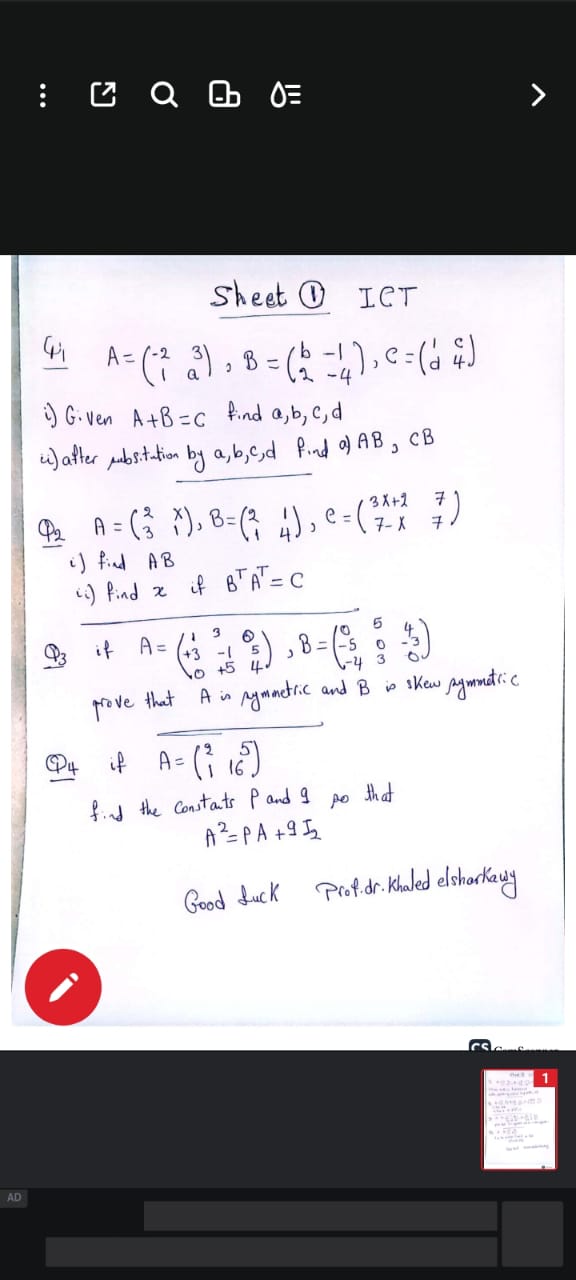 Sheet ① ICT
Q1 A = (-2 3; 1 a), B = (b -1; 2 -4), C = (1 c; d 4)
i) Given A+B=C find a,b,c,d
ii) after substitution by a,b,c,d find a) AB, CB
Q2 A = (2 x; 3 1), B = (2 1; 1 4), C = (3x+2 7; 7-x 7)
i) find AB
ii) find x if BᵀAᵀ = C
Q3 if A = (1 3 0; +3 -1 5; 0 +5 4), B = (0 5 4; -5 0 -3; -4 3 0)
prove that A is symmetric and B is skew symmetric
Q4 if A = (2 5; 1 16)
find the Constants P and q so that
A² = PA + q I₂
Good Luck Prof.dr.Khaled elsharkawy
CS
1
AD